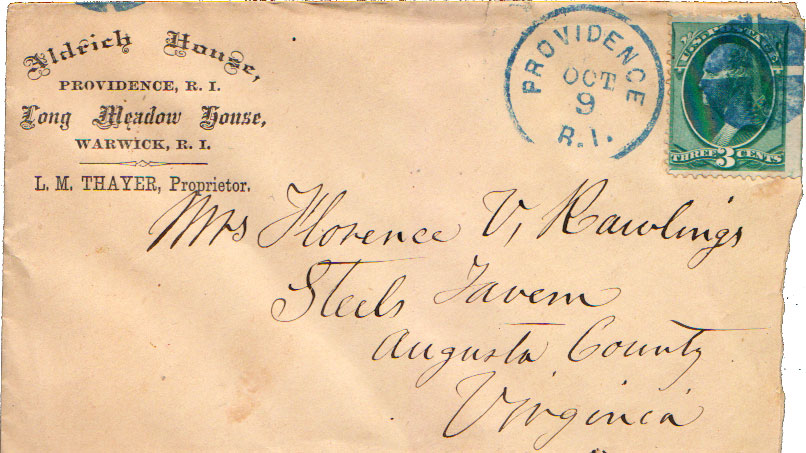 Aldrich House,
PROVIDENCE, R. I.
Long Meadow House,
WARWICK, R. I.
L. M. THAYER, Proprietor.
PROVIDENCE
OCT
9
R.I.
UNITED STATES
THREE 3 CENTS
Mrs Florence V, Rawlings
Steels Tavern
Augusta County
Virginia